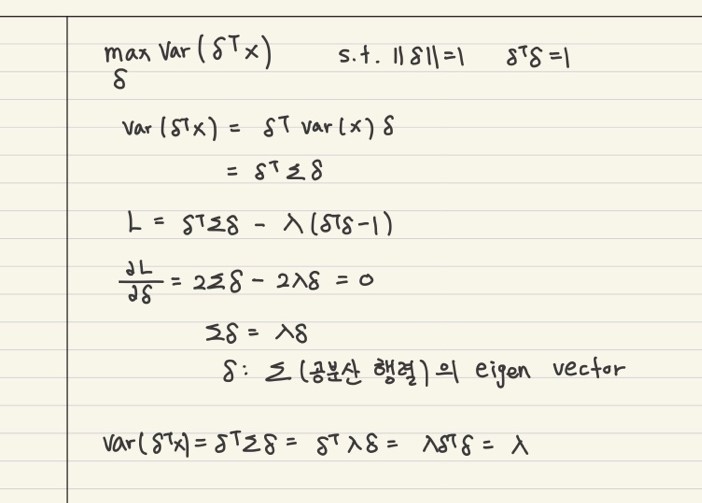 max Var(δᵀx) s.t. ||δ||=1 δᵀδ=1
δ
Var(δᵀx) = δᵀ Var(x) δ
= δᵀΣδ
L = δᵀΣδ - λ(δᵀδ-1)
∂L/∂δ = 2Σδ - 2λδ = 0
Σδ = λδ
δ: Σ(공분산 행렬)의 eigen vector
Var(δᵀx) = δᵀΣδ = δᵀλδ = λδᵀδ = λ